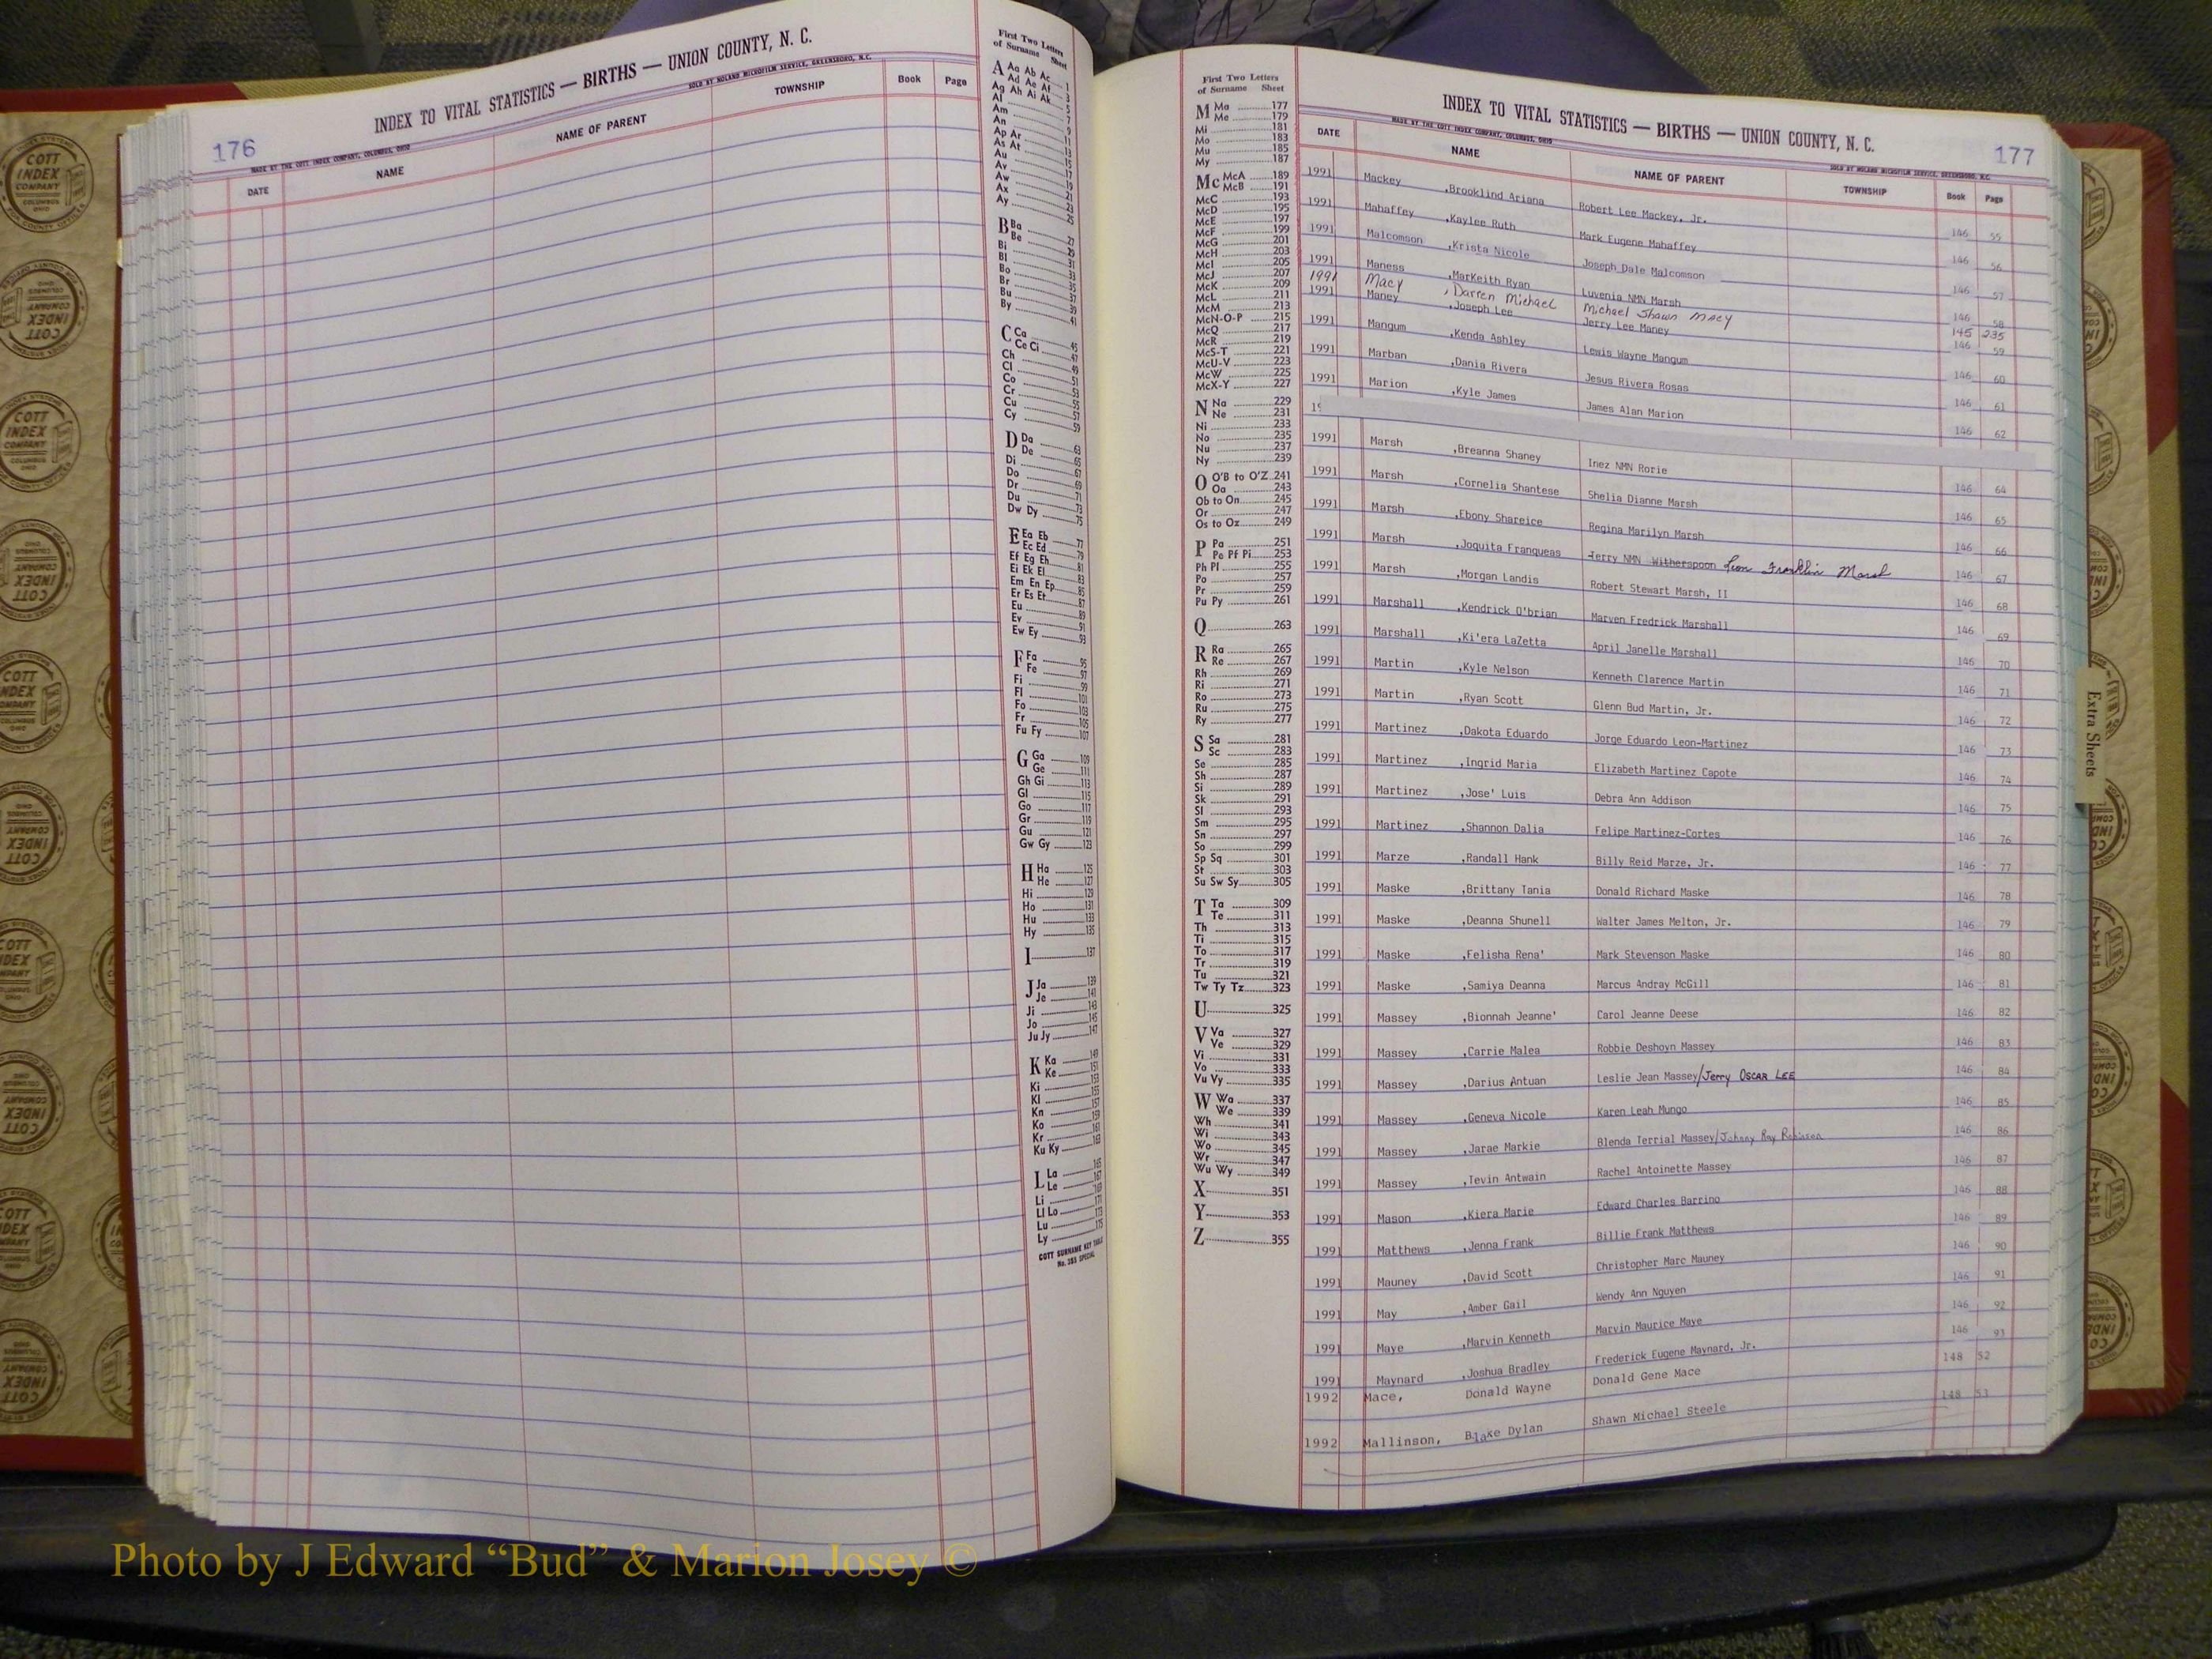 176
INDEX TO VITAL STATISTICS — BIRTHS — UNION COUNTY, N. C.
MADE BY THE COTT INDEX COMPANY, COLUMBUS, OHIO
SOLD BY NOLAND MICROFILM SERVICE, GREENSBORO, N.C.
DATE NAME NAME OF PARENT TOWNSHIP Book Page
First Two Letters
of Surname Sheet
A Aa Ab Ac 1
Ad Ae Af 3
Ag Ah Ai Ak 5
Al 7
Am 9
An 11
Ap Ar 13
As At 15
Au 17
Av 19
Aw 21
Ax 23
Ay 25
B Ba 27
Be 29
Bi 31
Bl 33
Bo 35
Br 37
Bu 39
By 41
C Ca 45
Ce Ci 47
Ch 49
Cl 51
Co 53
Cr 55
Cu 57
Cy 59
D Da 63
De 65
Di 67
Do 69
Dr 71
Du 73
Dw Dy 75
E Ea Eb 77
Ec Ed 79
Ef Eg Eh 81
Ei Ek El 83
Em En Ep 85
Er Es Et 87
Eu 89
Ev 91
Ew Ey 93
F Fa 95
Fe 97
Fi 99
Fl 101
Fo 103
Fr 105
Fu Fy 107
G Ga 109
Ge 111
Gh Gi 113
Gl 115
Go 117
Gr 119
Gu 121
Gw Gy 123
H Ha 125
He 127
Hi 129
Ho 131
Hu 133
Hy 135
I 137
J Ja 139
Je 141
Ji 143
Jo 145
Ju Jy 147
K Ka 149
Ke 151
Ki 153
Kl 155
Kn 157
Ko 159
Kr 161
Ku Ky 163
L La 165
Le 167
Li 169
Ll Lo 171
Lu 173
Ly 175
COTT SURNAME KEY TABLE
No. 285 SPECIAL
First Two Letters
of Surname Sheet
M Ma 177
Me 179
Mi 181
Mo 183
Mu 185
My 187
Mc McA 189
McB 191
McC 193
McD 195
McE 197
McF 199
McG 201
McH 203
McI 205
McJ 207
McK 209
McL 211
McM 213
McN-O-P 215
McQ 217
McR 219
McS-T 221
McU-V 223
McW 225
McX-Y 227
N Na 229
Ne 231
Ni 233
No 235
Nu 237
Ny 239
O O'B to O'Z 241
Oa 243
Ob to On 245
Or 247
Os to Oz 249
P Pa 251
Pe Pf Pi 253
Ph Pl 255
Po 257
Pr 259
Pu Py 261
Q 263
R Ra 265
Re 267
Rh 269
Ri 271
Ro 273
Ru 275
Ry 277
S Sa 281
Sc 283
Se 285
Sh 287
Si 289
Sk 291
Sl 293
Sm 295
Sn 297
So 299
Sp Sq 301
St 303
Su Sw Sy 305
T Ta 309
Te 311
Th 313
Ti 315
To 317
Tr 319
Tu 321
Tw Ty Tz 323
U 325
V Va 327
Ve 329
Vi 331
Vo 333
Vu Vy 335
W Wa 337
We 339
Wh 341
Wi 343
Wo 345
Wr 347
Wu Wy 349
X 351
Y 353
Z 355
INDEX TO VITAL STATISTICS — BIRTHS — UNION COUNTY, N. C.
177
MADE BY THE COTT INDEX COMPANY, COLUMBUS, OHIO
SOLD BY NOLAND MICROFILM SERVICE, GREENSBORO, N.C.
DATE NAME NAME OF PARENT TOWNSHIP Book Page
1991 Mackey ,Brooklind Ariana Robert Lee Mackey, Jr. 146 55
1991 Mahaffey ,Kaylee Ruth Mark Eugene Mahaffey 146 56
1991 Malcomson ,Krista Nicole Joseph Dale Malcomson 146 57
1991 Maness ,MarKeith Ryan Luvenia NMN Marsh 146 58
1991 Macy , Darren Michael Michael Shawn Macy 145 235
1991 Maney ,Joseph Lee Jerry Lee Maney 146 59
1991 Mangum ,Kenda Ashley Lewis Wayne Mangum 146 60
1991 Marban ,Dania Rivera Jesus Rivera Rosas 146 61
1991 Marion ,Kyle James James Alan Marion 146 62
1991 Marsh ,Breanna Shaney Inez NMN Rorie 146 64
1991 Marsh ,Cornelia Shantese Shelia Dianne Marsh 146 65
1991 Marsh ,Ebony Shareice Regina Marilyn Marsh 146 66
1991 Marsh ,Joquita Franqueas Jerry NMN Witherspoon Leon Franklin Marsh 146 67
1991 Marsh ,Morgan Landis Robert Stewart Marsh, II 146 68
1991 Marshall ,Kendrick O'brian Marven Fredrick Marshall 146 69
1991 Marshall ,Ki'era LaZetta April Janelle Marshall 146 70
1991 Martin ,Kyle Nelson Kenneth Clarence Martin 146 71
1991 Martin ,Ryan Scott Glenn Bud Martin, Jr. 146 72
1991 Martinez ,Dakota Eduardo Jorge Eduardo Leon-Martinez 146 73
1991 Martinez ,Ingrid Maria Elizabeth Martinez Capote 146 74
1991 Martinez ,Jose' Luis Debra Ann Addison 146 75
1991 Martinez ,Shannon Dalia Felipe Martinez-Cortes 146 76
1991 Marze ,Randall Hank Billy Reid Marze, Jr. 146 77
1991 Maske ,Brittany Tania Donald Richard Maske 146 78
1991 Maske ,Deanna Shunell Walter James Melton, Jr. 146 79
1991 Maske ,Felisha Rena' Mark Stevenson Maske 146 80
1991 Maske ,Samiya Deanna Marcus Andray McGill 146 81
1991 Massey ,Bionnah Jeanne' Carol Jeanne Deese 146 82
1991 Massey ,Carrie Malea Robbie Deshoyn Massey 146 83
1991 Massey ,Darius Antuan Leslie Jean Massey/Jerry Oscar Lee 146 84
1991 Massey ,Geneva Nicole Karen Leah Mungo 146 85
1991 Massey ,Jarae Markie Blenda Terrial Massey/Johnny Ray Robinson 146 86
1991 Massey ,Tevin Antwain Rachel Antoinette Massey 146 87
1991 Mason ,Kiera Marie Edward Charles Barrino 146 88
1991 Matthews ,Jenna Frank Billie Frank Matthews 146 89
1991 Mauney ,David Scott Christopher Marc Mauney 146 90
1991 May ,Amber Gail Wendy Ann Nguyen 146 91
1991 Maye ,Marvin Kenneth Marvin Maurice Maye 146 92
1991 Maynard ,Joshua Bradley Frederick Eugene Maynard, Jr. 146 93
1992 Mace, Donald Wayne Donald Gene Mace 148 52
1992 Mallinson, Blake Dylan Shawn Michael Steele 148 53
Extra Sheets
Photo by J Edward “Bud” & Marion Josey ©